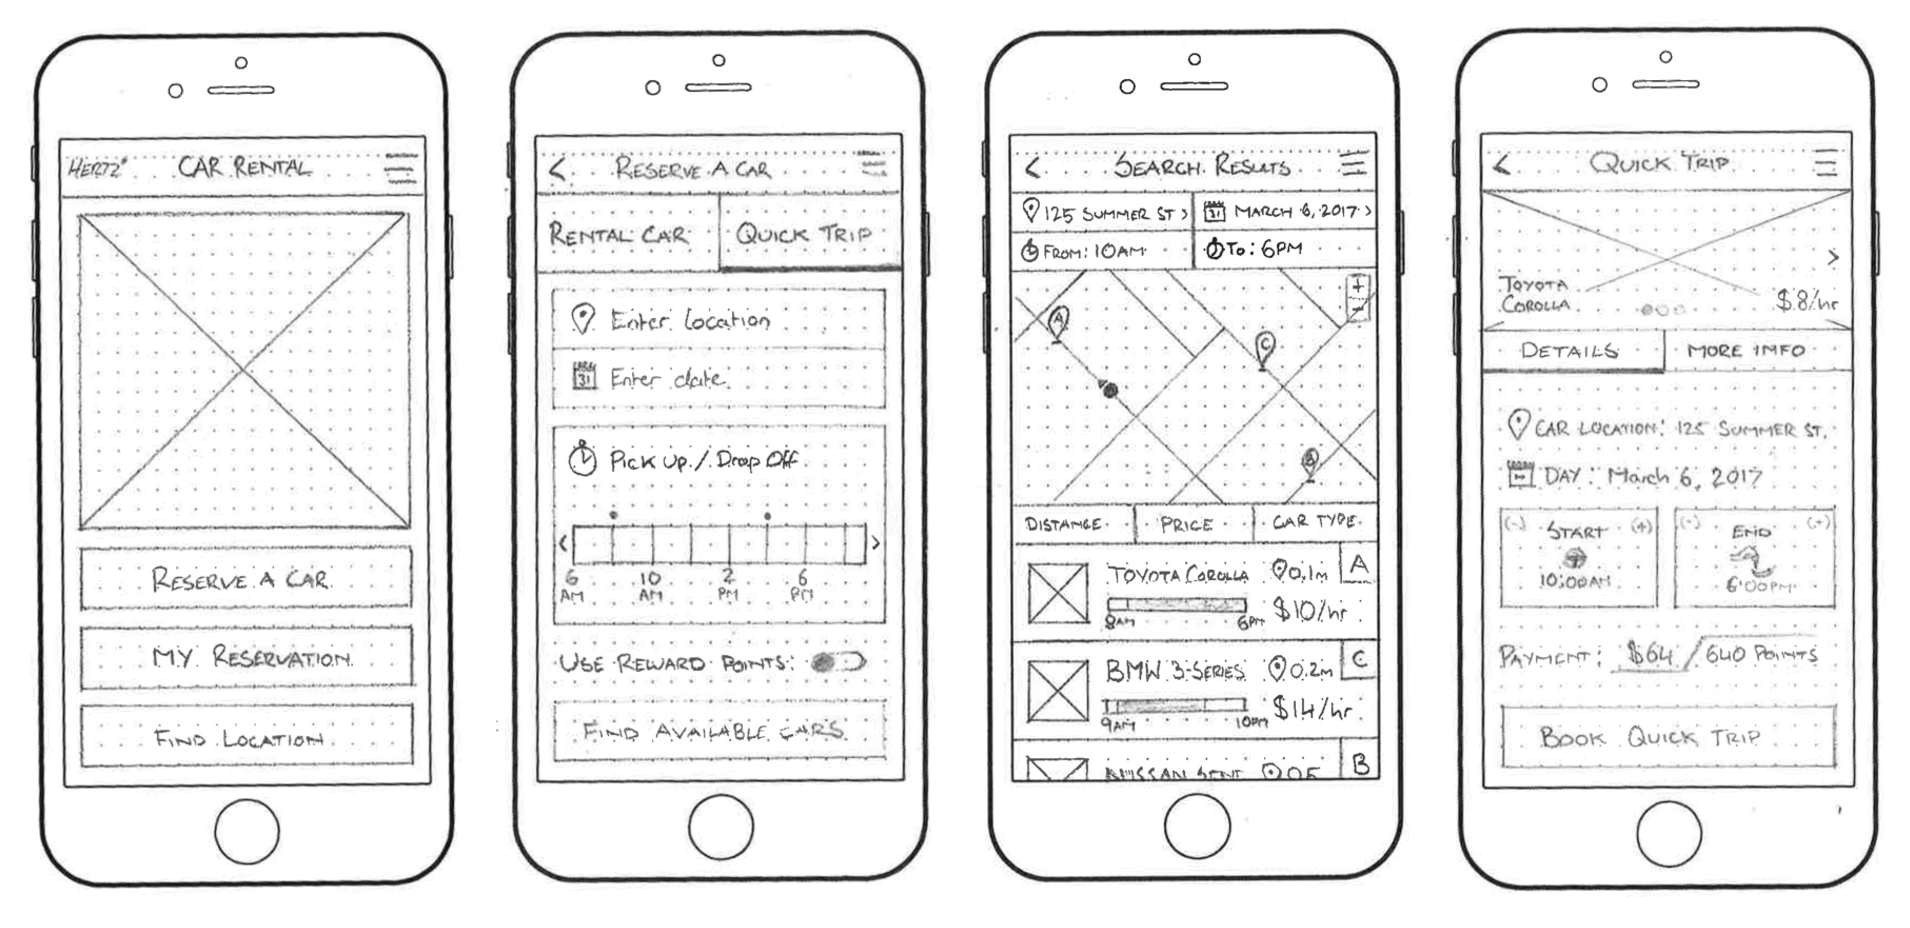 HERTZ CAR RENTAL
RESERVE A CAR
MY RESERVATION
FIND LOCATION
< RESERVE A CAR
RENTAL CAR QUICK TRIP
Enter location
31 Enter date
Pick Up / Drop Off
< >
6 10 2 6
AM AM PM PM
USE REWARD POINTS:
FIND AVAILABLE CARS
< SEARCH RESULTS
125 SUMMER ST > 31 MARCH 6, 2017 >
FROM: 10AM TO: 6PM
+
-
A
C
B
DISTANCE PRICE CAR TYPE
TOYOTA COROLLA 0.1M A
8AM 6PM $10/hr
BMW 3-SERIES 0.2M C
9AM 10PM $14/hr
B
< QUICK TRIP
>
TOYOTA
COROLLA $8/hr
DETAILS MORE INFO
CAR LOCATION: 125 SUMMER ST.
DAY: March 6, 2017
(-) START (+) (-) END (+)
10:00AM 6:00PM
PAYMENT: $64 / 640 POINTS
BOOK QUICK TRIP